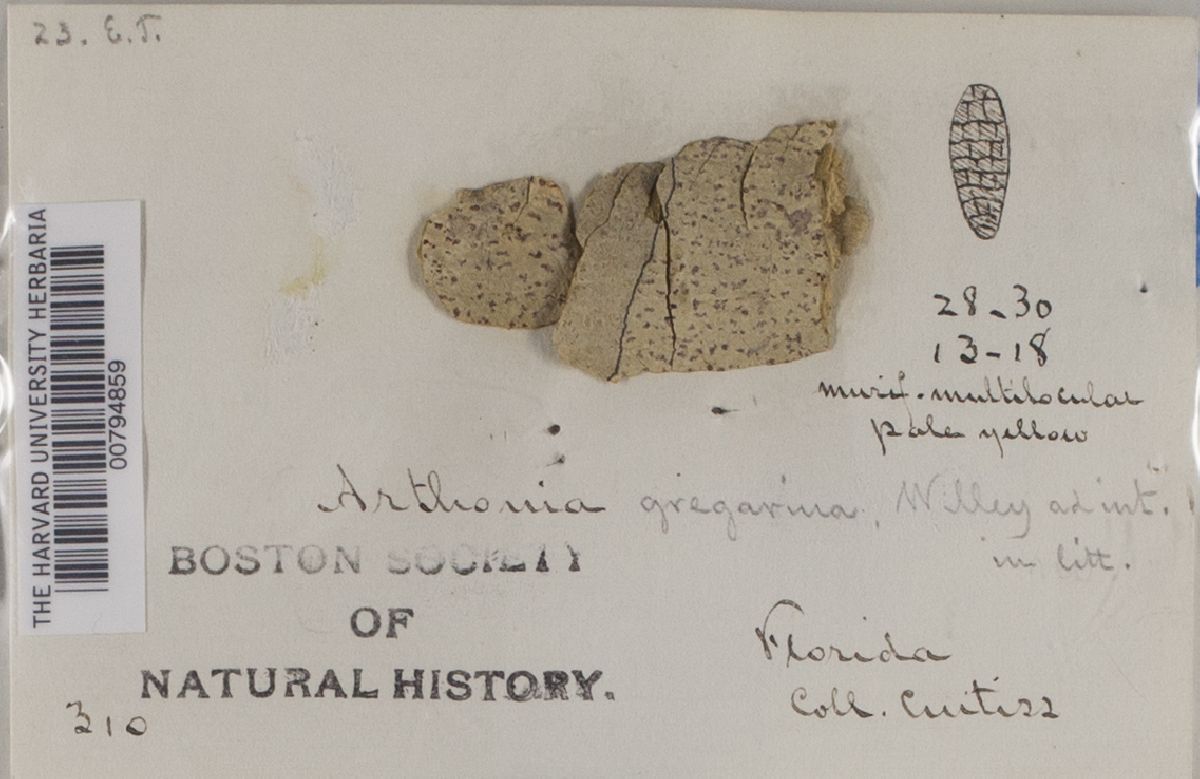 23. E.T.
THE HARVARD UNIVERSITY HERBARIA
00794859
28-30
13-18
murif. multilocular
pale yellow
Arthonia gregarina, Willey ad int.
in litt.
BOSTON SOCIETY
OF
NATURAL HISTORY.
Florida
Coll. Curtiss
310